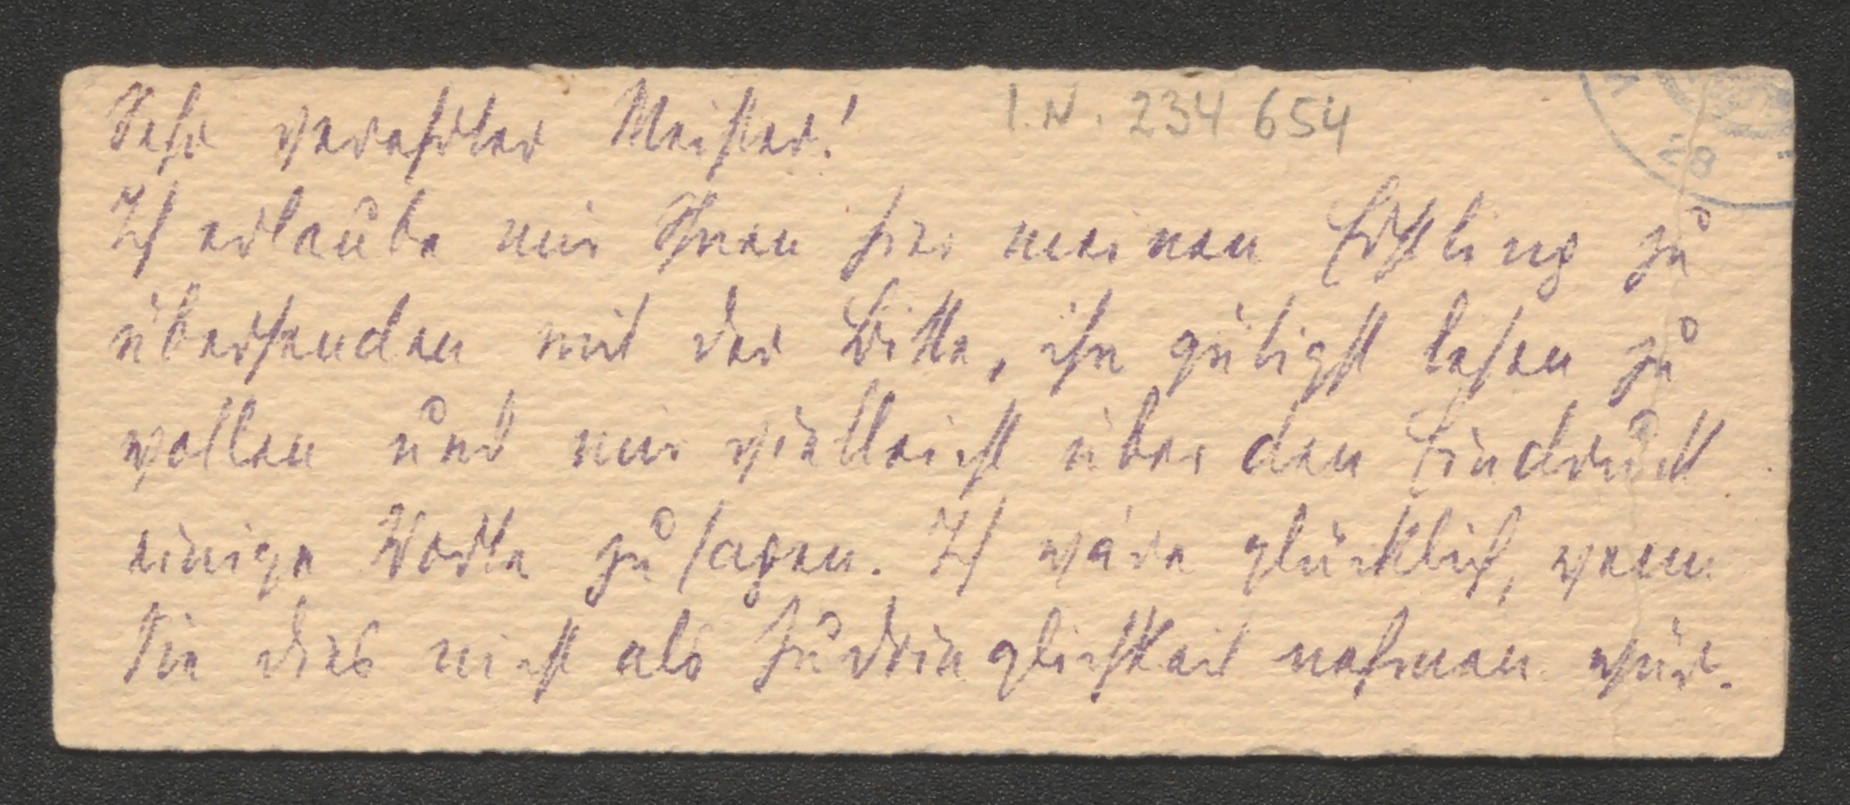 Sehr verehrter Meister!
I.N. 234 654
28
Ich erlaube mir Ihnen hier meinen Erstling zu
übersenden mit der Bitte, ihn gütigst lesen zu
wollen und mir vielleicht über den Eindruck
einige Worte zu sagen. Ich wäre glücklich, wenn
Sie dies nicht als Zudringlichkeit nehmen wür-